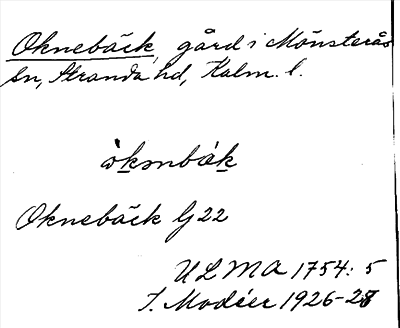 Oknebäck, gård i Mönsterås
sn, Stranda hd, Kalm. l.
Oknebäck G22
ULMA 1754: 5
J. Modéer 1926-28